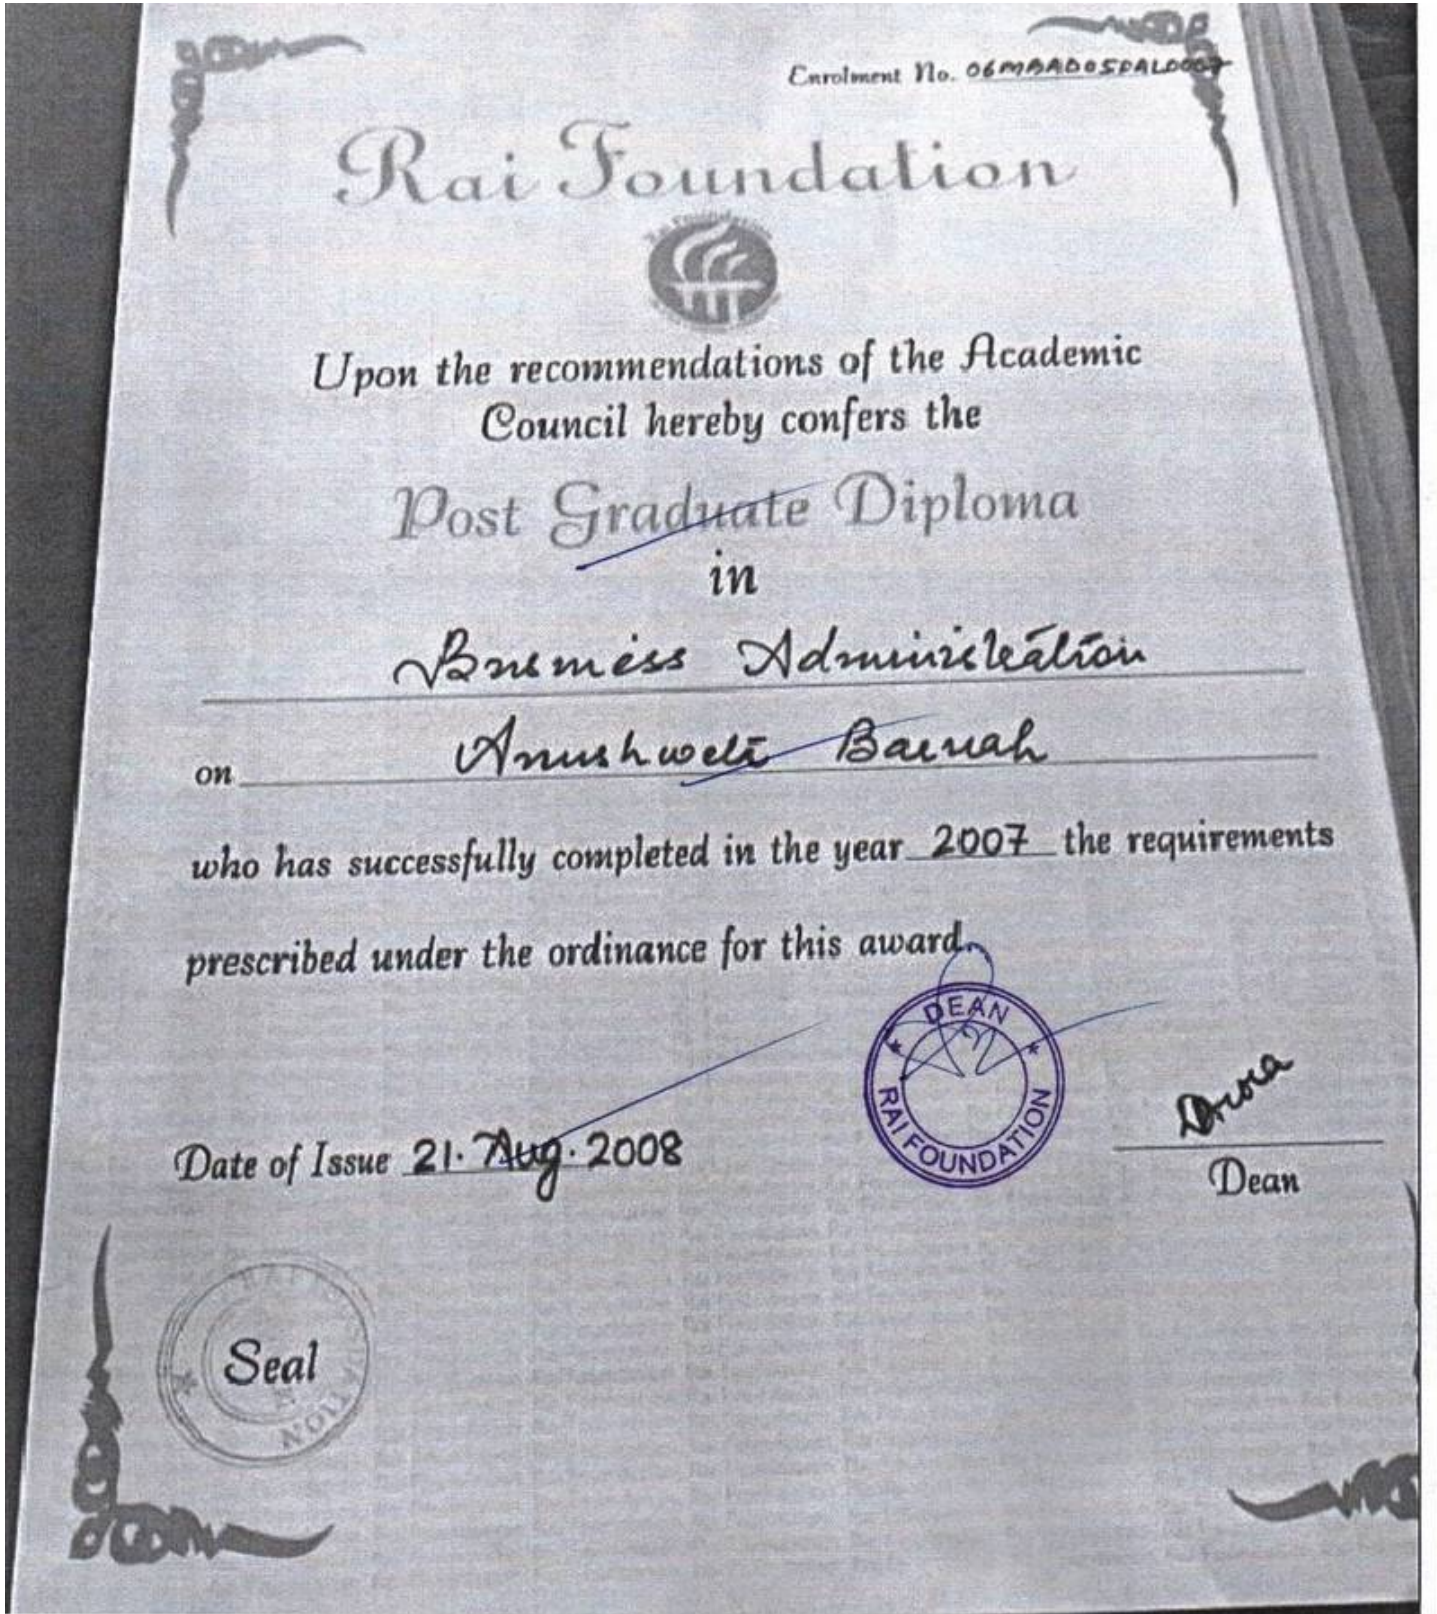 Enrolment No. 06MBAD05PAL0007
Rai Foundation
Rai Foundation
Upon the recommendations of the Academic
Council hereby confers the
Post Graduate Diploma
in
Business Administration
on Anushweta Baruah
who has successfully completed in the year 2007 the requirements
prescribed under the ordinance for this award.
DEAN
RAI FOUNDATION
Date of Issue 21. Aug. 2008
Dean
Seal